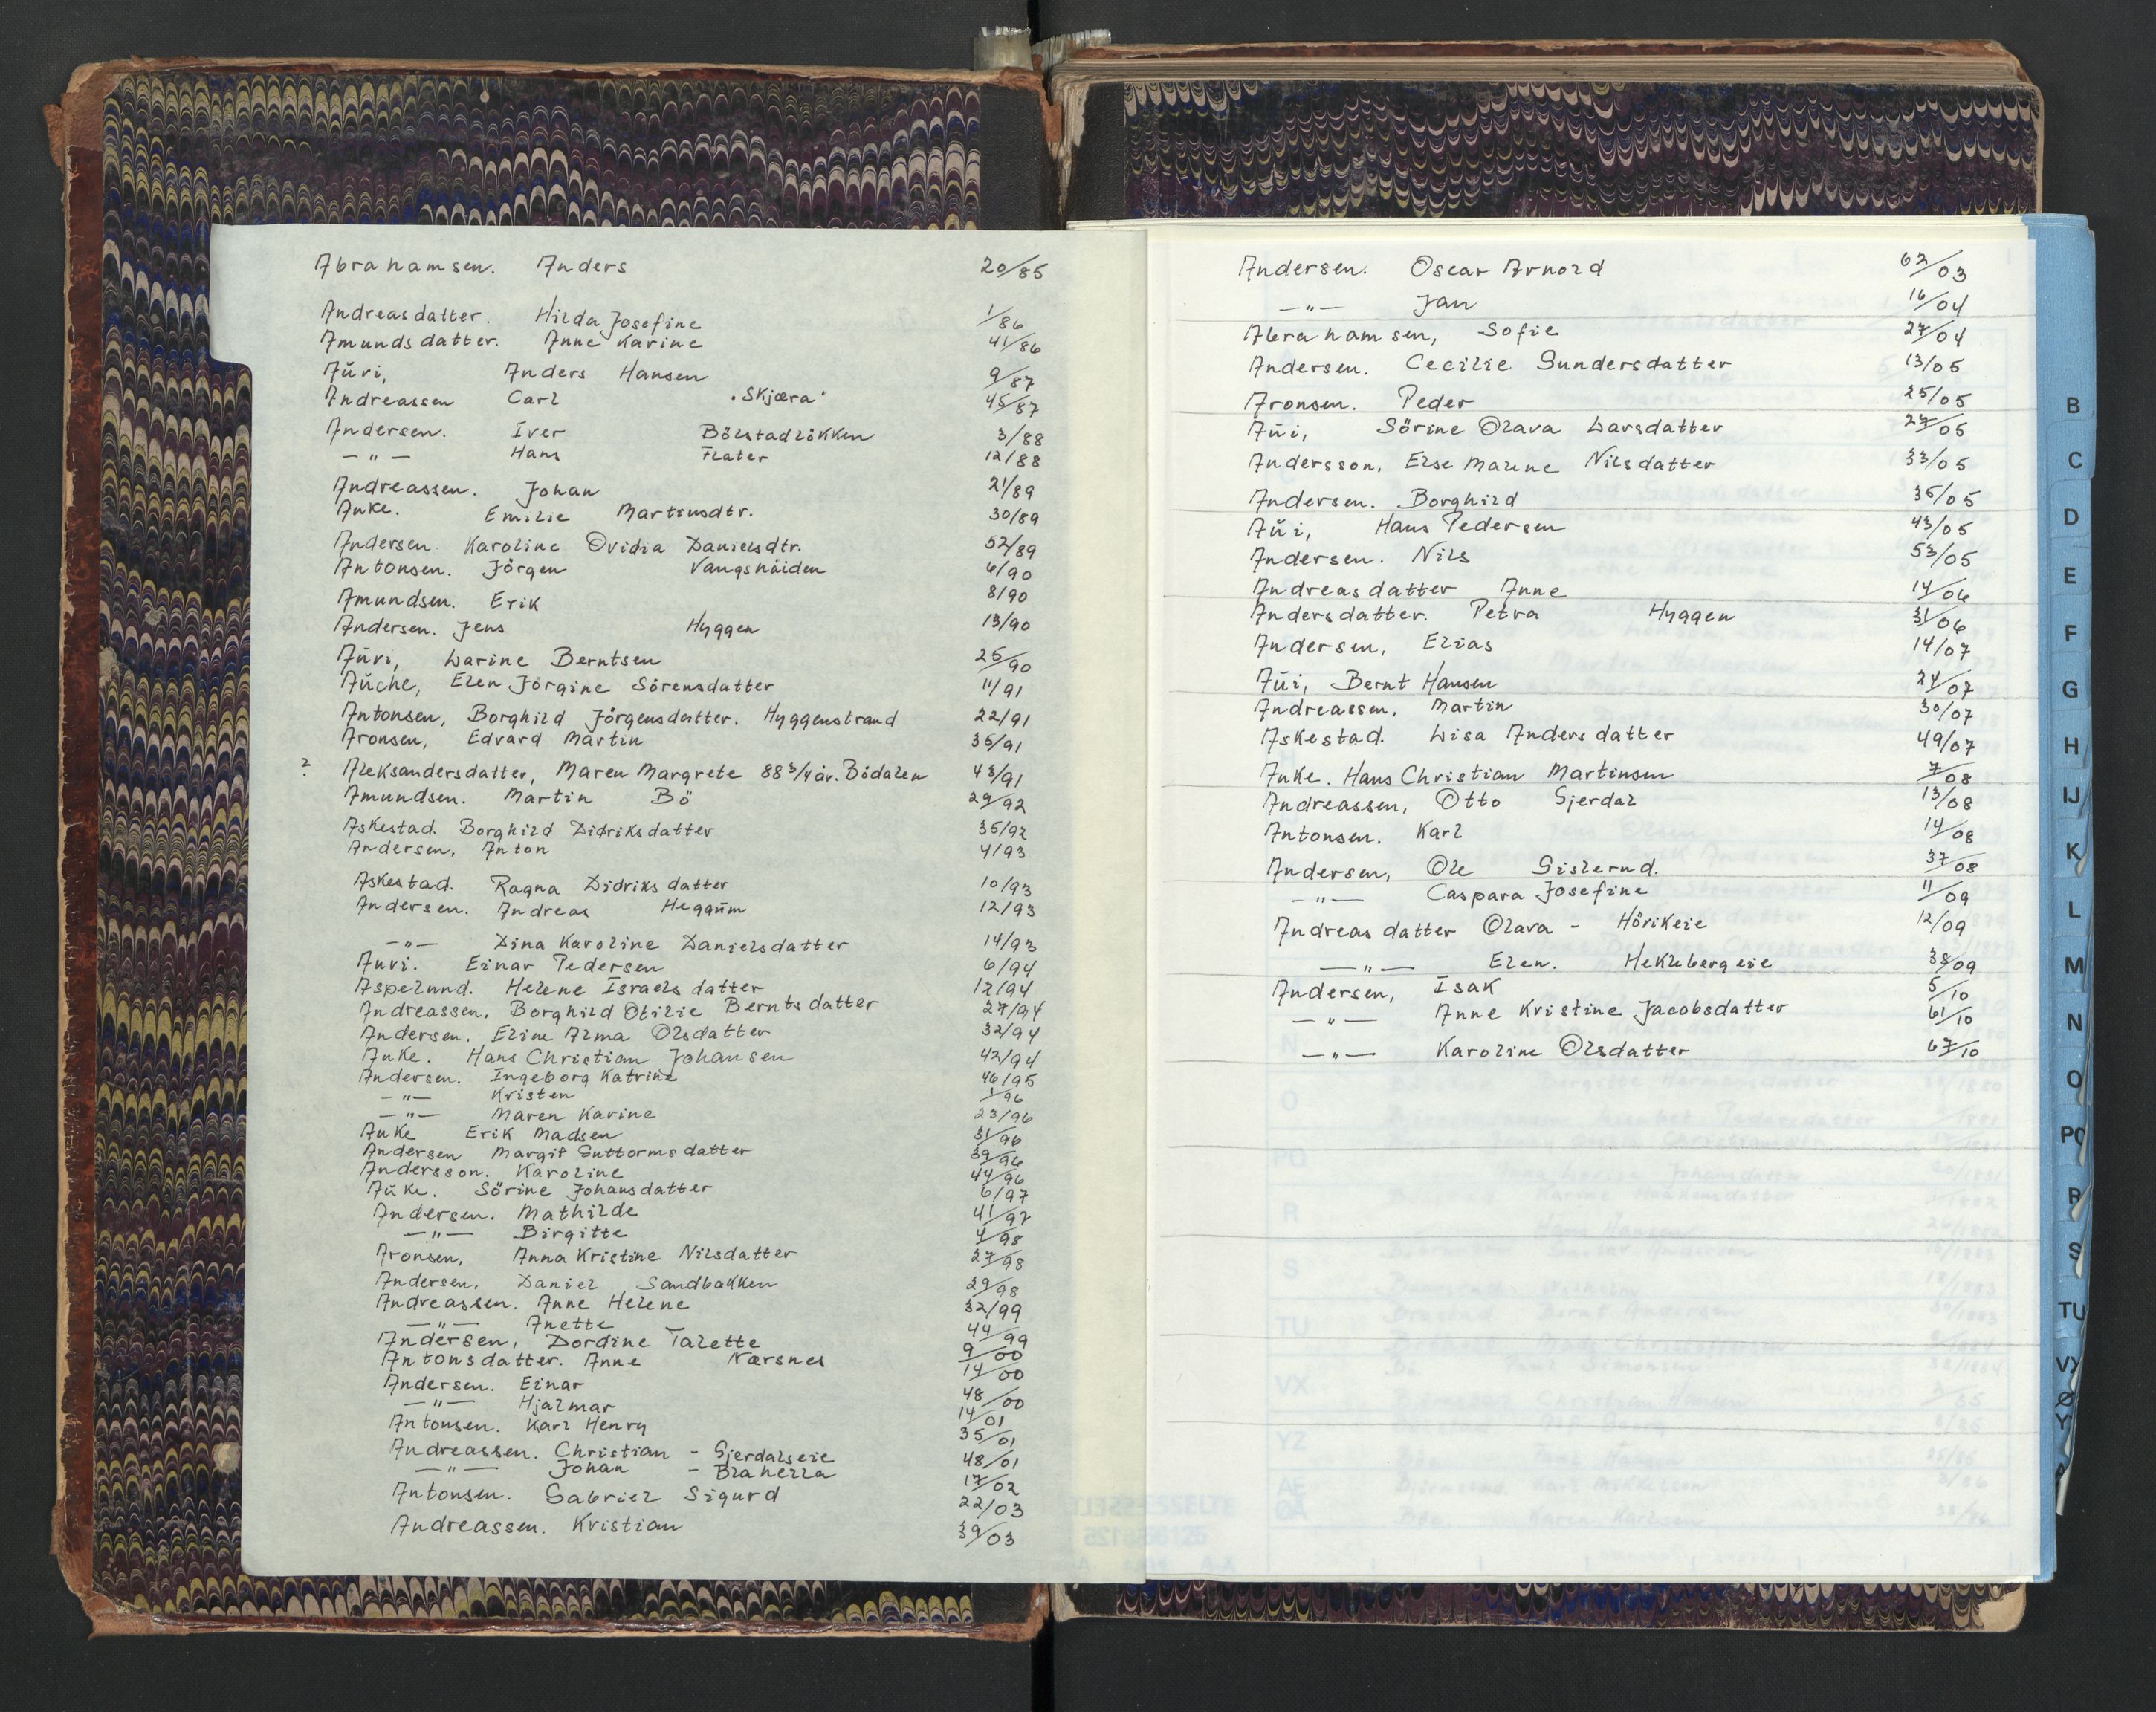 Abrahamsen. Anders 20/85
Andreasdatter. Hilda Josefine 1/86
Amundsdatter. Anne Karine 41/86
Aŭvi, Anders Hansen 9/87
Andreassen Carl "Skjæra" 45/87
Andersen. Iver Bölstadlökken 3/88
—"— Hans Flater 12/88
Andreassen. Johan 21/89
Auke. Emilie Martinsdtr. 30/89
Andersen. Karoline Ovidia Danielsdtr. 52/89
Antonsen. Jörgen Vangsnäiden 6/90
Amundsen. Erik 8/90
Andersen. Jens Hyggen 13/90
Aŭvi, Larine Berntsen 25/90
Aŭche, Elen Jörgine Sörensdatter 11/91
Antonsen, Borghild Jörgensdatter. Hyggenstrand 22/91
Aronsen, Edvard Martin 35/91
? Aleksandersdatter, Maren Margrete 88 3/4 år. Bödalen 43/91
Amundsen. Martin Bö 29/92
Askestad. Borghild Didriksdatter 35/92
Andersen, Anton 4/93
Askestad. Ragna Didriksdatter 10/93
Andersen. Andreas Heggŭm 12/93
—"— Dina Karoline Danielsdatter 14/93
Auvi. Einar Pedersen 6/94
Aspelund. Helene Israelsdatter 12/94
Andreassen. Borghild Otilie Berntsdatter 27/94
Andersen. Eline Alma Olsdatter 32/94
Auke. Hans Christian Johansen 42/94
Andersen. Ingeborg Katrine 46/95
—"— Kristen 1/96
—"— Maren Karine 23/96
Auke Erik Madsen 31/96
Andersen Margit Guttormsdatter 39/96
Andersson. Karoline 44/96
Aŭke. Sörine Johansdatter 6/97
Andersen. Mathilde 41/97
—"— Birgitte 4/98
Aronsen, Anna Kristine Nilsdatter 27/98
Andersen. Daniel Sandbakken 29/98
Andreassen. Anne Helene 32/99
—"— Anette 44/99
Andersen, Dordine Talette 9/00
Antonsdatter. Anne Nærsnes 14/00
Andersen. Einar 48/00
—"— Hjalmar 14/01
Antonsen. Karl Henry 35/01
Andreassen. Christian - Gjerdalseie 48/01
—"— Johan - Blahella 17/02
Antonsen. Gabriel Sigurd 22/03
Andreassen. Kristian 39/03
Andersen. Oscar Arnold 62/03
—"— Jan 16/04
Abrahamsen, Sofie 27/04
Andersen. Cecilie Gundersdatter 13/05
Aronsen. Peder 25/05
Aŭi, Sörine Olava Larsdatter 27/05
Andersson. Else Malene Nilsdatter 33/05
Andersen. Borghild 35/05
Aŭi, Hans Pedersen 43/05
Andersen. Nils 53/05
Andreasdatter Anne 14/06
Andersdatter. Petra Hyggen 31/06
Andersen, Elias 14/07
Aŭi, Bernt Hansen 24/07
Andreassen. Martin 30/07
Askestad. Lisa Andersdatter 49/07
Auke. Hans Christian Martinsen 7/08
Andreassen, Otto Gjerdal 13/08
Antonsen. Karl 14/08
Andersen, Ole Gislerud. 37/08
—"— Caspara Josefine 11/09
Andreasdatter Olava - Hörikeie 12/09
—"— Elen. Heklebergeie 38/09
Andersen, Isak 5/10
—"— Anne Kristine Jacobsdatter 61/10
—"— Karoline Olsdatter 67/10
B
C
D
E
F
G
H
IJ
K
L
M
N
O
PQ
R
S
TU
VX
Ø
Y